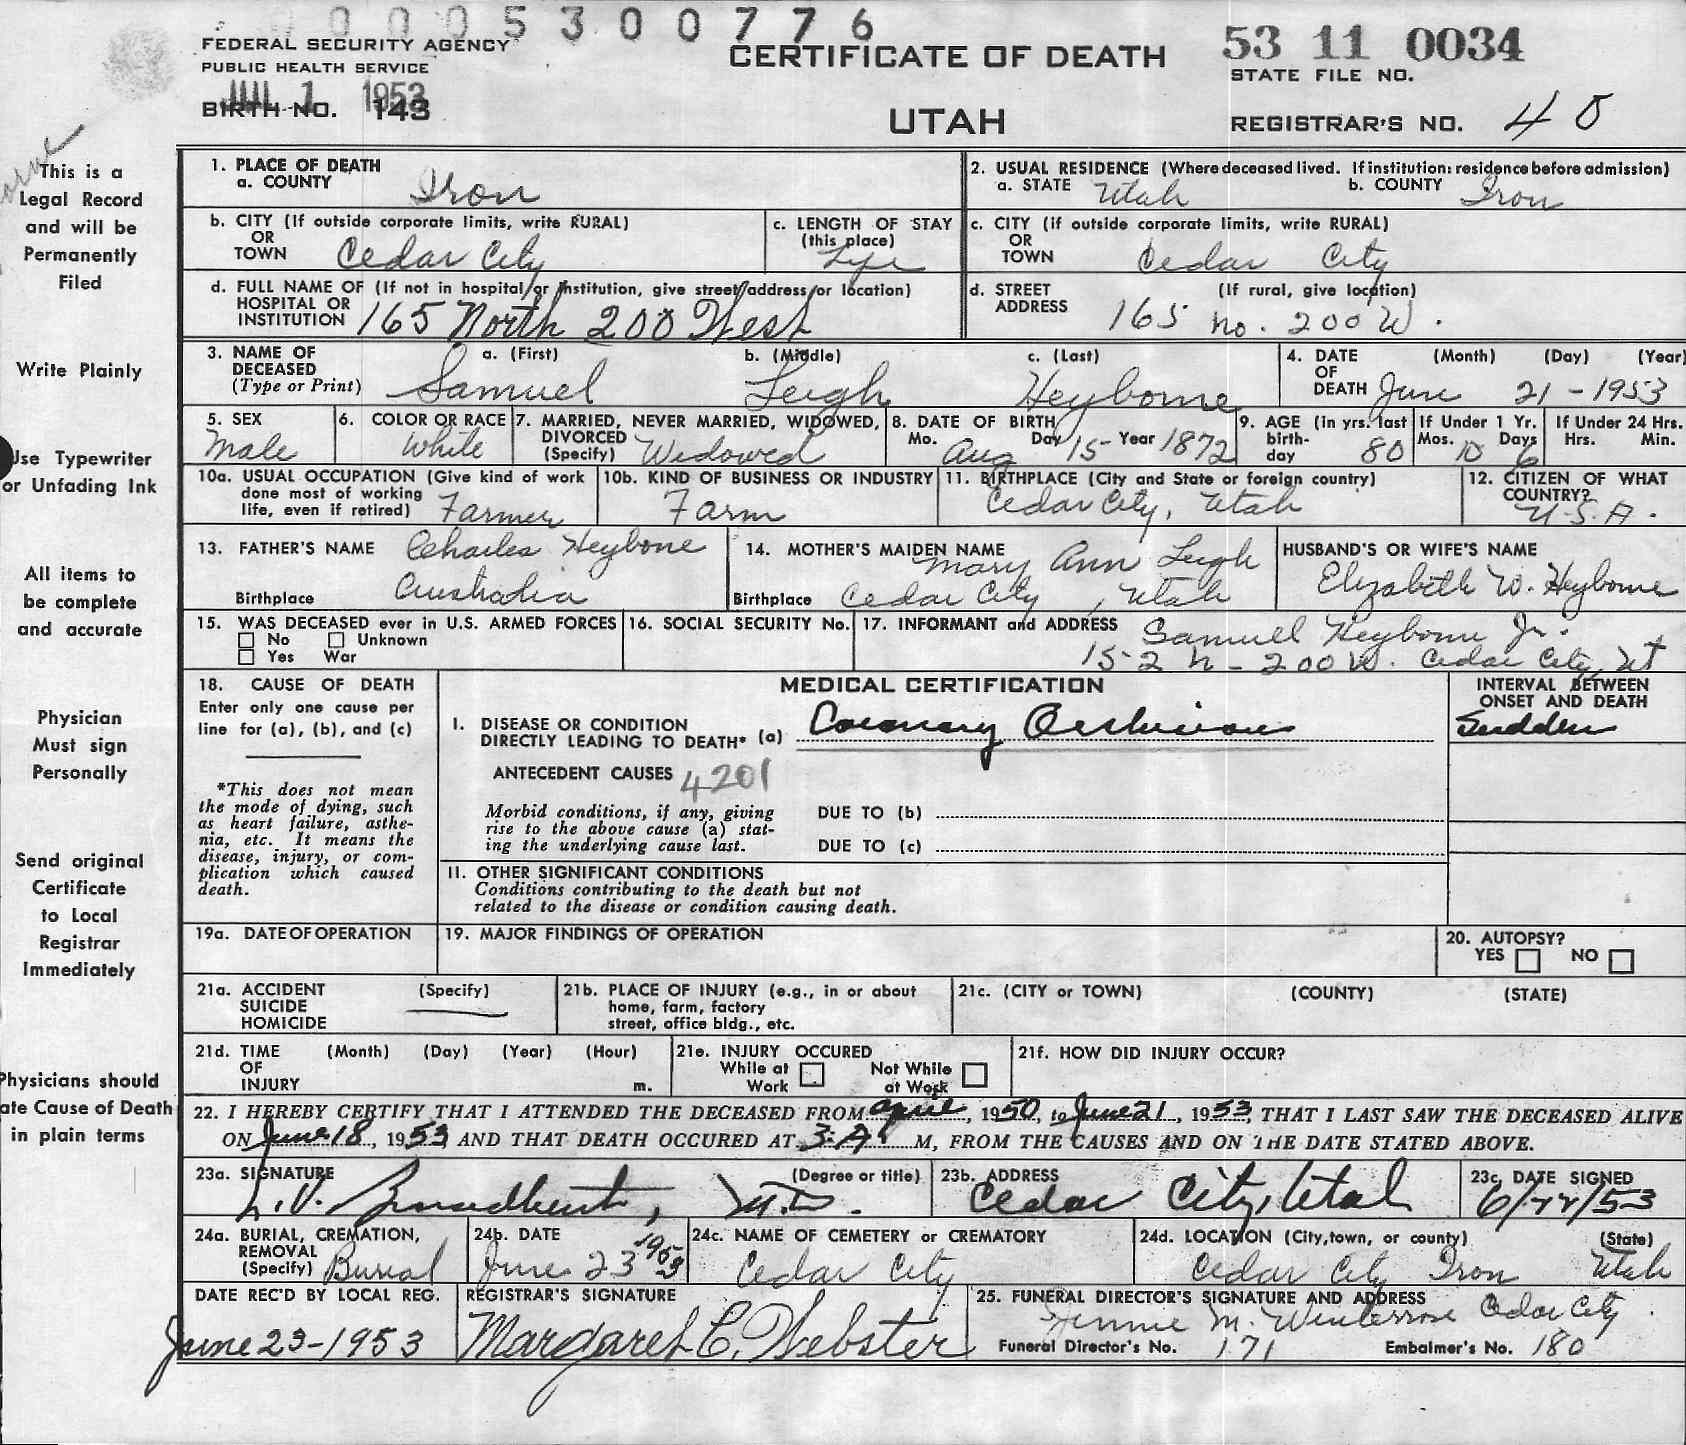 0005300776
FEDERAL SECURITY AGENCY
PUBLIC HEALTH SERVICE
JUL 1 1953
BIRTH NO. 143
CERTIFICATE OF DEATH
UTAH
53 11 0034
STATE FILE NO.
REGISTRAR'S NO. 40
This is a
Legal Record
and will be
Permanently
Filed
Write Plainly
Use Typewriter
or Unfading Ink
All items to
be complete
and accurate
Physician
Must sign
Personally
Send original
Certificate
to Local
Registrar
Immediately
Physicians should
ate Cause of Death
in plain terms
1. PLACE OF DEATH
a. COUNTY Iron
2. USUAL RESIDENCE (Where deceased lived. If institution: residence before admission)
a. STATE Utah b. COUNTY Iron
b. CITY (If outside corporate limits, write RURAL)
OR
TOWN Cedar City
c. LENGTH OF STAY
(this place)
Life
c. CITY (If outside corporate limits, write RURAL)
OR
TOWN Cedar City
d. FULL NAME OF (If not in hospital or institution, give street address or location)
HOSPITAL OR
INSTITUTION 165 North 200 West
d. STREET (If rural, give location)
ADDRESS 165 no. 200 W.
3. NAME OF DECEASED a. (First) b. (Middle) c. (Last)
(Type or Print) Samuel Leigh Heyborne
4. DATE OF DEATH (Month) (Day) (Year)
June 21-1953
5. SEX
Male
6. COLOR OR RACE
White
7. MARRIED, NEVER MARRIED, WIDOWED,
DIVORCED
(Specify) Widowed
8. DATE OF BIRTH
Mo. Aug Day 15- Year 1872
9. AGE (in yrs. last
birth-
day 80
If Under 1 Yr.
Mos. 10 Days 6
If Under 24 Hrs.
Hrs. Min.
10a. USUAL OCCUPATION (Give kind of work
done most of working
life, even if retired) Farmer
10b. KIND OF BUSINESS OR INDUSTRY
Farm
11. BIRTHPLACE (City and State or foreign country)
Cedar City, Utah
12. CITIZEN OF WHAT
COUNTRY?
U.S.A.
13. FATHER'S NAME Charles Heyborne
Birthplace Australia
14. MOTHER'S MAIDEN NAME
Mary Ann Leigh
Birthplace Cedar City, Utah
HUSBAND'S OR WIFE'S NAME
Elizabeth W. Heyborne
15. WAS DECEASED ever in U.S. ARMED FORCES
No Unknown
Yes War
16. SOCIAL SECURITY No.
17. INFORMANT and ADDRESS Samuel Heyborne Jr.
152 N - 200 W. Cedar City, Ut
18. CAUSE OF DEATH
Enter only one cause per
line for (a), (b), and (c)
*This does not mean
the mode of dying, such
as heart failure, asthe-
nia, etc. It means the
disease, injury, or com-
plication which caused
death.
MEDICAL CERTIFICATION
INTERVAL BETWEEN
ONSET AND DEATH
I. DISEASE OR CONDITION
DIRECTLY LEADING TO DEATH* (a) Coronary Occlusion
Sudden
ANTECEDENT CAUSES 4201
Morbid conditions, if any, giving
rise to the above cause (a) stat-
ing the underlying cause last.
DUE TO (b)
DUE TO (c)
II. OTHER SIGNIFICANT CONDITIONS
Conditions contributing to the death but not
related to the disease or condition causing death.
19a. DATE OF OPERATION
19. MAJOR FINDINGS OF OPERATION
20. AUTOPSY?
YES NO
21a. ACCIDENT (Specify)
SUICIDE
HOMICIDE
21b. PLACE OF INJURY (e.g., in or about
home, farm, factory
street, office bldg., etc.
21c. (CITY or TOWN) (COUNTY) (STATE)
21d. TIME (Month) (Day) (Year) (Hour)
OF
INJURY m.
21e. INJURY OCCURED
While at Work
Not While at Work
21f. HOW DID INJURY OCCUR?
22. I HEREBY CERTIFY THAT I ATTENDED THE DECEASED FROM April, 1950, to June 21, 1953, THAT I LAST SAW THE DECEASED ALIVE
ON June 18, 1953 AND THAT DEATH OCCURED AT 3:A M, FROM THE CAUSES AND ON THE DATE STATED ABOVE.
23a. SIGNATURE (Degree or title)
L.V. Broadbent, M.D.
23b. ADDRESS
Cedar City, Utah
23c. DATE SIGNED
6/22/53
24a. BURIAL, CREMATION,
REMOVAL
(Specify) Burial
24b. DATE
June 23 1953
24c. NAME OF CEMETERY or CREMATORY
Cedar City
24d. LOCATION (City, town, or county) (State)
Cedar City Iron Utah
DATE REC'D BY LOCAL REG.
June 23-1953
REGISTRAR'S SIGNATURE
Margaret C. Webster
25. FUNERAL DIRECTOR'S SIGNATURE AND ADDRESS
Jennie M. Winterrose Cedar City
Funeral Director's No. 171 Embalmer's No. 180